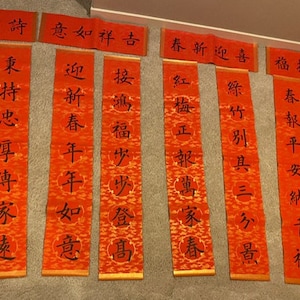 詩
秉持忠厚傳家遠
吉祥如意
接鴻福步步登高
迎新春年年如意
喜迎新春
綠竹別具三分景
紅梅正報萬家春
福
春報平安納